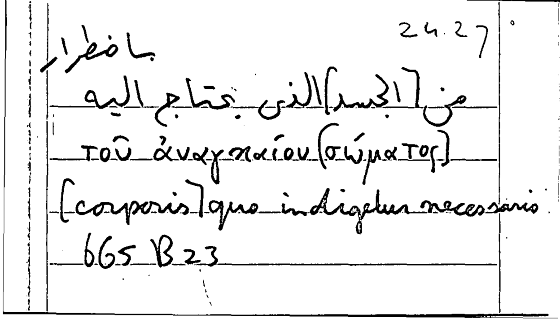 24.27
باضطرار
من [الجسد] الذى يحتاج اليه
τοῦ ἀναγκαίου [σώματος]
[corporis] quo indigetur necessario
665 B 23